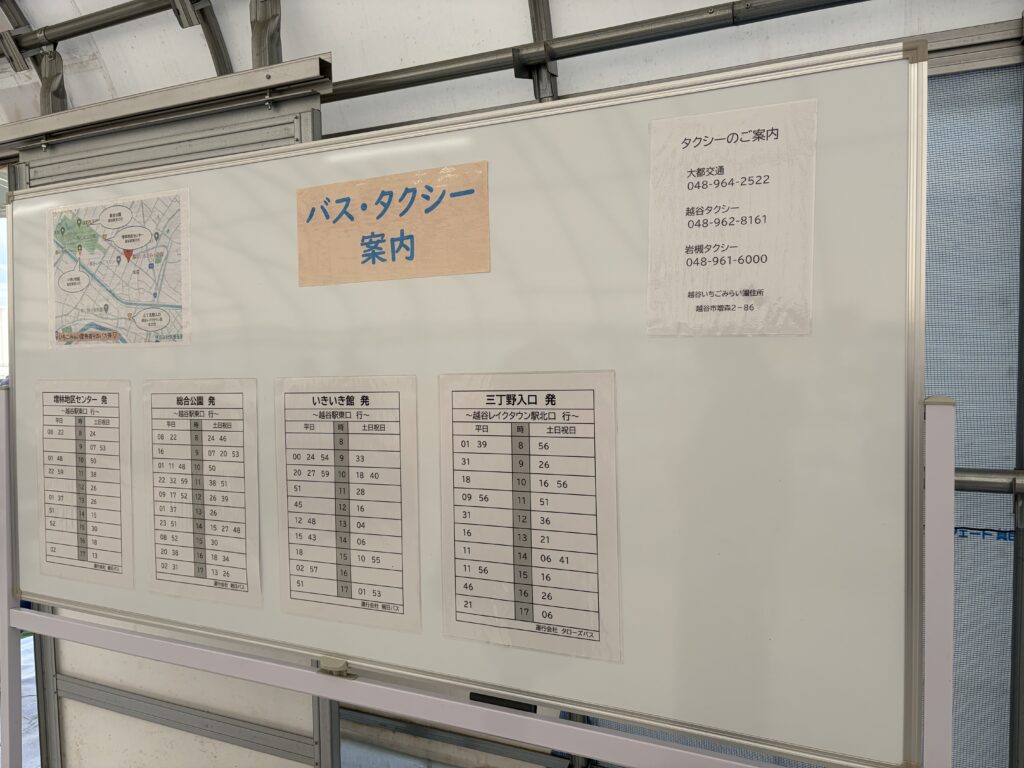 バス・タクシー
案内
タクシーのご案内
大都交通
048-964-2522
越谷タクシー
048-962-8161
岩槻タクシー
048-961-6000
越谷いちごみらい園住所
越谷市増森2-86
増林地区センター 発
~越谷駅東口 行~
平日 時 土日祝日
08 22 8 24
9 07 53
01 48 10 50
22 59 11 38
12 26
01 37 13 26
51 14 15
52 15 30
16
02 17 13
運行会社 朝日バス
総合公園 発
~越谷駅東口 行~
平日 時 土日祝日
08 22 8 24 46
16 9 07 20 53
01 11 48 10 50
22 32 59 11 38 51
09 17 52 12 26 39
01 37 13 26
23 51 14 15 27 48
08 52 15 30
20 38 16 18 34
02 31 17 13 26
運行会社 朝日バス
いきいき館 発
~越谷駅東口 行~
平日 時 土日祝日
8
00 24 54 9 33
20 27 59 10 18 40
51 11 28
45 12 16
12 48 13 04
15 43 14 06
18 15 10 55
02 57 16
51 17 01 53
運行会社 朝日バス
三丁野入口 発
~越谷レイクタウン駅北口 行~
平日 時 土日祝日
01 39 8 56
31 9 26
18 10 16 56
09 56 11 51
31 12 36
16 13 21
11 14 06 41
11 56 15 16
46 16 26
21 17 06
運行会社 タローズバス